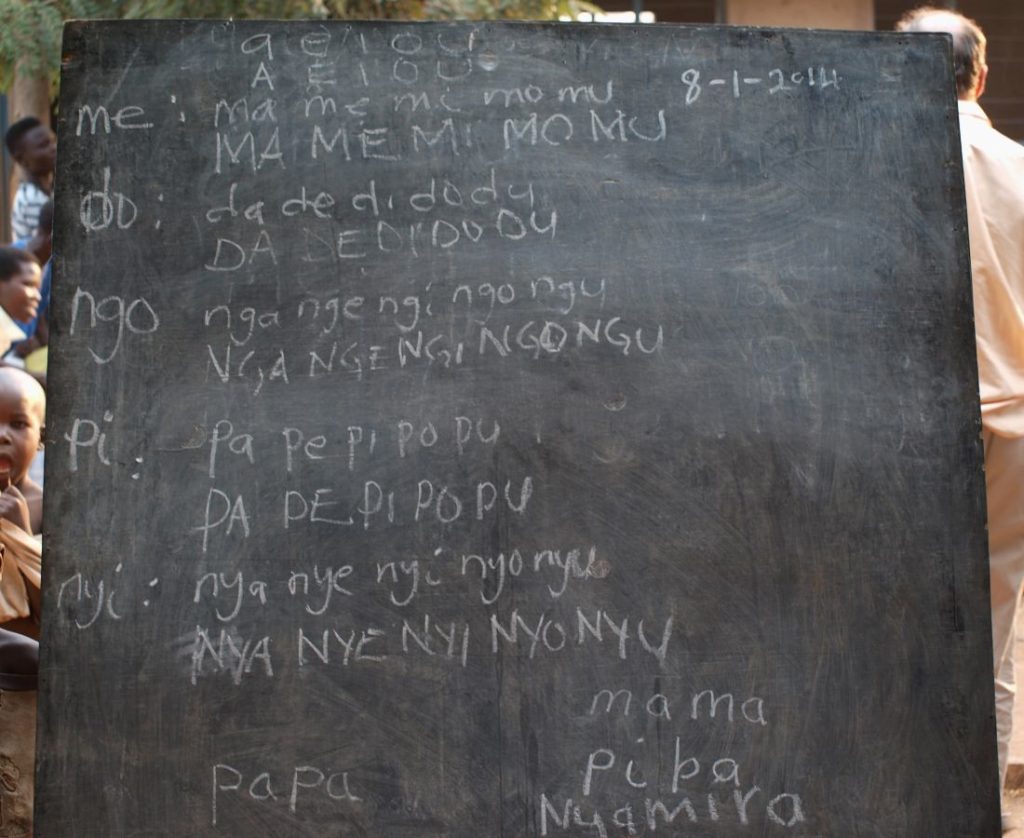 a e i o u
A E I O U
8-1-2014
me : ma me mi mo mu
MA ME MI MO MU
do : da de di do du
DA DE DI DO DU
ngo nga nge ngi ngo ngu
NGA NGE NGI NGO NGU
pi : pa pe pi po pu
PA PE PI PO PU
nyi : nya nye nyi nyo nyu
NYA NYE NYI NYO NYU
mama
papa piba
Nyamira